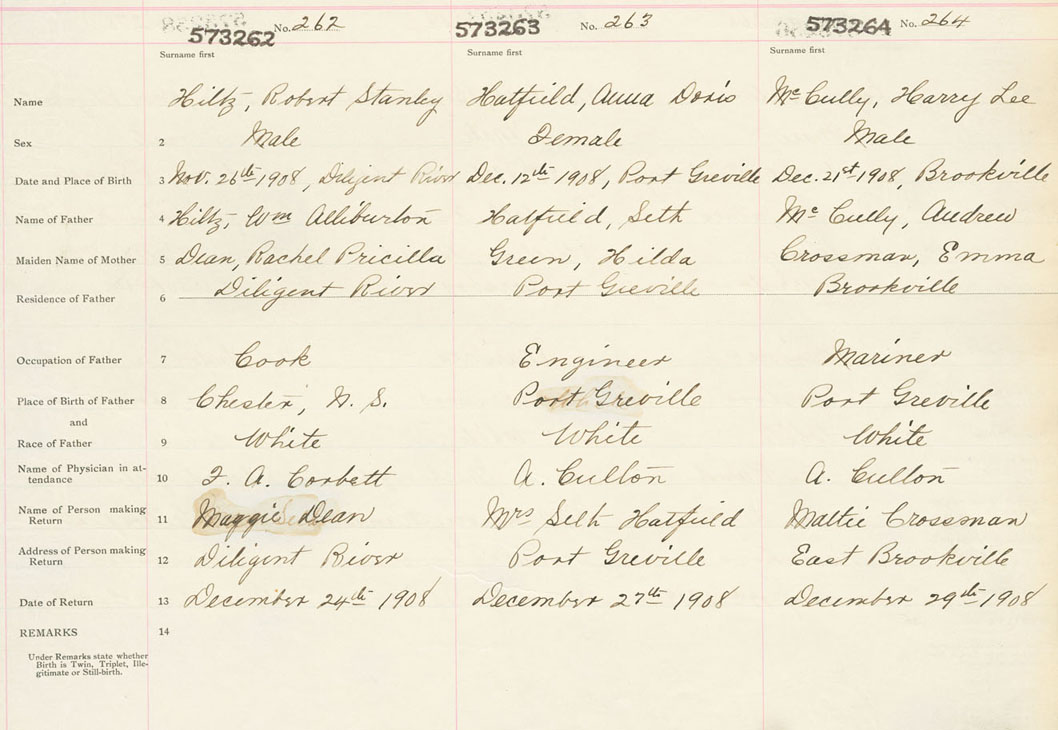 573262 No. 262 573263 No. 263 573264 No. 264
Surname first Surname first Surname first
Name Hiltz, Robert Stanley Hatfield, Anna Doris McCully, Harry Lee
Sex 2 Male Female Male
Date and Place of Birth 3 Nov. 26th 1908, Diligent River Dec. 12th 1908, Port Greville Dec. 21st 1908, Brookville
Name of Father 4 Hiltz, Wm Alliburton Hatfield, Seth McCully, Andrew
Maiden Name of Mother 5 Dean, Rachel Pricilla Green, Hilda Crossman, Emma
Residence of Father 6 Diligent River Port Greville Brookville
Occupation of Father 7 Cook Engineer Mariner
Place of Birth of Father 8 Chester, N. S. Port Greville Port Greville
and
Race of Father 9 White White White
Name of Physician in at-
tendance 10 F. A. Corbett A. Cullon A. Cullon
Name of Person making
Return 11 Maggie Dean Mrs Seth Hatfield Mattie Crossman
Address of Person making
Return 12 Diligent River Port Greville East Brookville
Date of Return 13 December 24th 1908 December 27th 1908 December 29th 1908
REMARKS 14
Under Remarks state whether
Birth is Twin, Triplet, Ille-
gitimate or Still-birth.